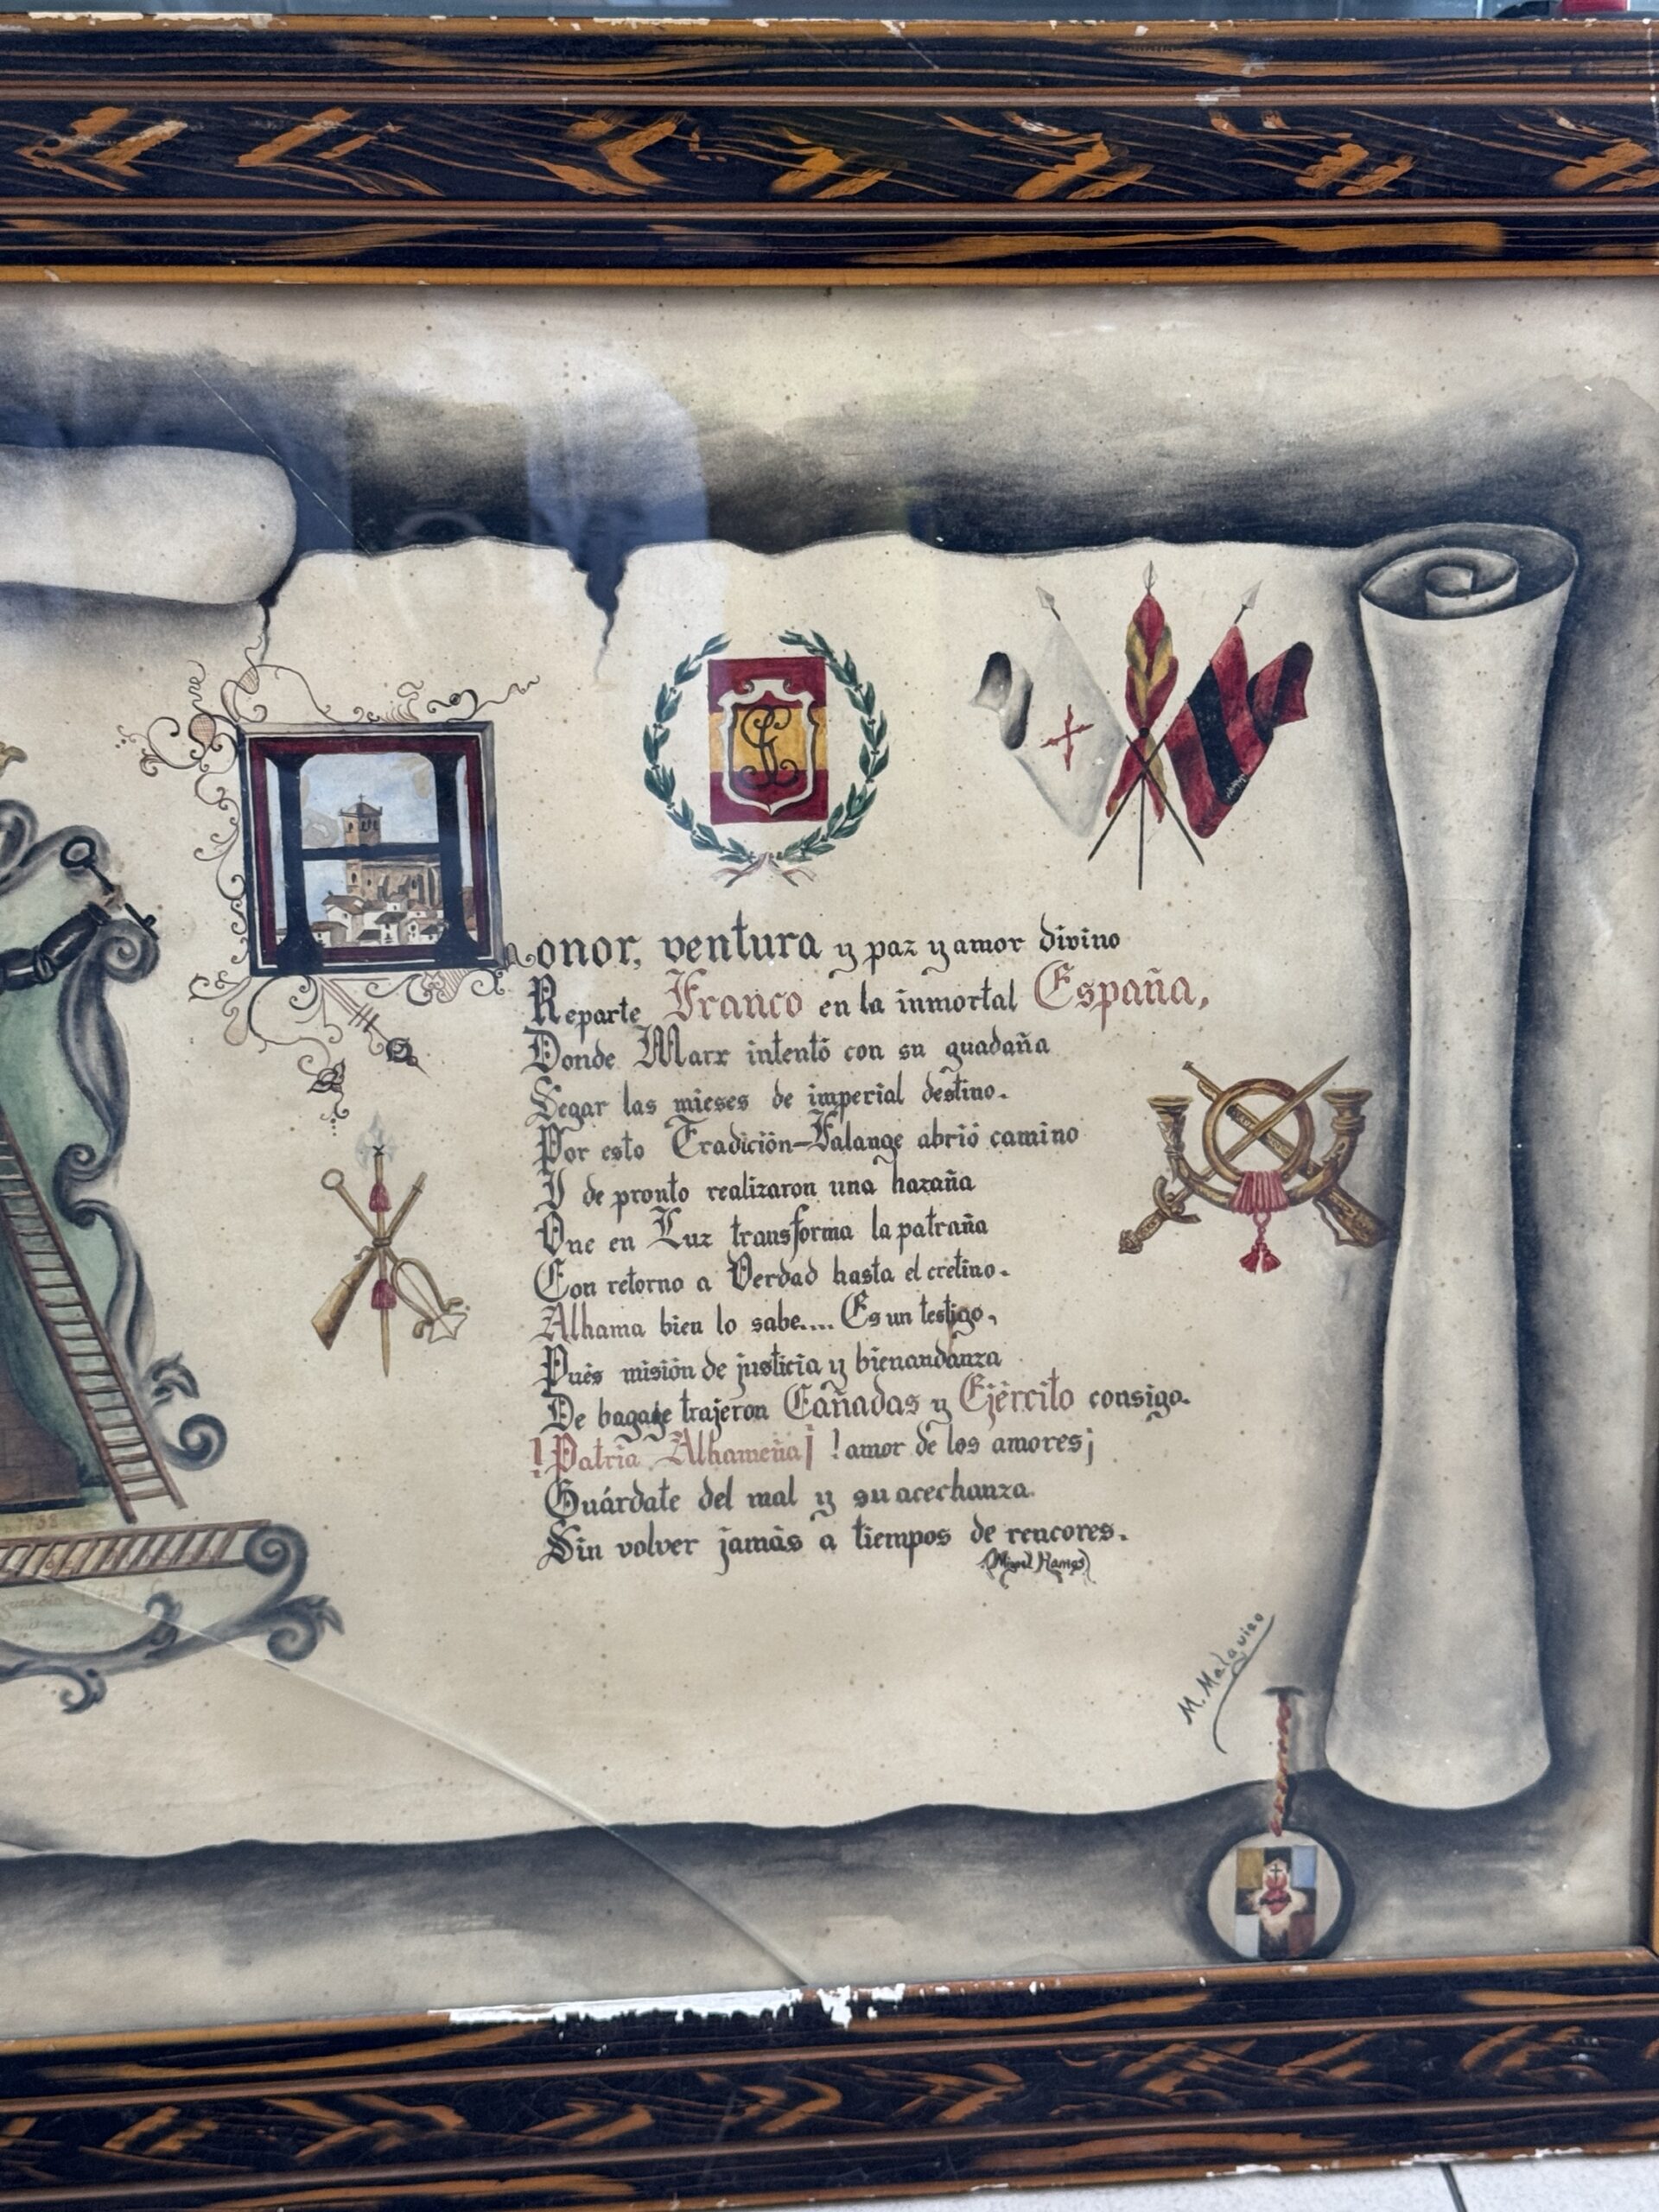 Honor, ventura y paz y amor divino
Reparte Franco en la inmortal España,
Donde Marx intentó con su guadaña
Segar las mieses de imperial destino.
Por esto Tradición-Falange abrió camino
Y de pronto realizaron una hazaña
Que en Luz transforma la patraña
Con retorno a Verdad hasta el cretino.
Alhama bien lo sabe.... Es un testigo,
Pués misión de justicia y bienandanza
De bagage trajeron Cañadas y Ejército consigo.
!Patria Alhameña¡ !amor de los amores¡
Guárdate del mal y su acechanza
Sin volver jamás a tiempos de rencores.
(Miguel Ramos)
M. Malaguino
1938
Guardia Civil